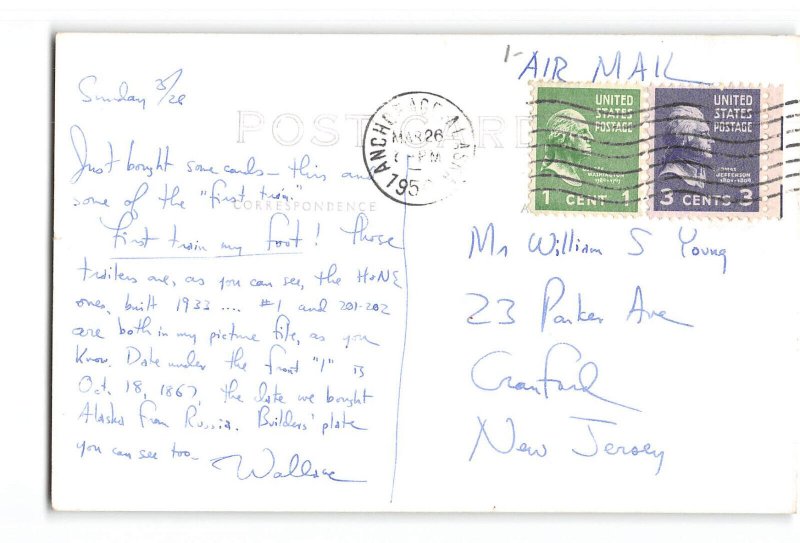 1-
AIR MAIL
Sunday 3/26
POST CARD
ANCHORAGE, ALASKA
MAR 26
PM
195
UNITED STATES POSTAGE
WASHINGTON
1789-1797
1 CENT 1
UNITED STATES POSTAGE
JEFFERSON
1801-1809
3 CENTS 3
Just bought some cards — this and
some of the "first train."
CORRESPONDENCE
First train my foot! Those
trailers are, as you can see, the H&NE
ones, built 1933 .... #1 and 201-202
are both in my picture file, as you
know. Date under the front "1" is
Oct. 18, 1867, the date we bought
Alaska from Russia. Builders' plate
you can see too—
Wallace
Mr William S Young
23 Parker Ave
Cranford
New Jersey